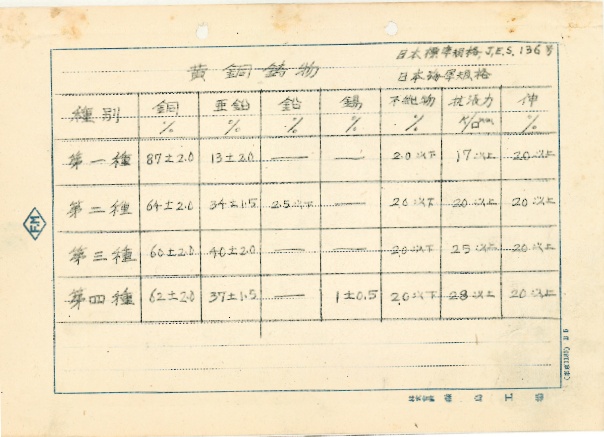 日本標準規格 J.E.S. 136号
黄銅鋳物 日本海軍規格
種別 銅 亜鉛 鉛 錫 不純物 抗張力 伸
% % % % % %
第一種 87±2.0 13±2.0 — — 2.0以下 17以上 20以上
第二種 64±2.0 34±1.5 2.5以下 — 2.0以下 20以上 20以上
第三種 60±2.0 40±2.0 — — 2.0以下 25以上 20以上
第四種 62±2.0 37±1.5 — 1±0.5 2.0以下 28以上 20以上
F.M
株式会社
島 工